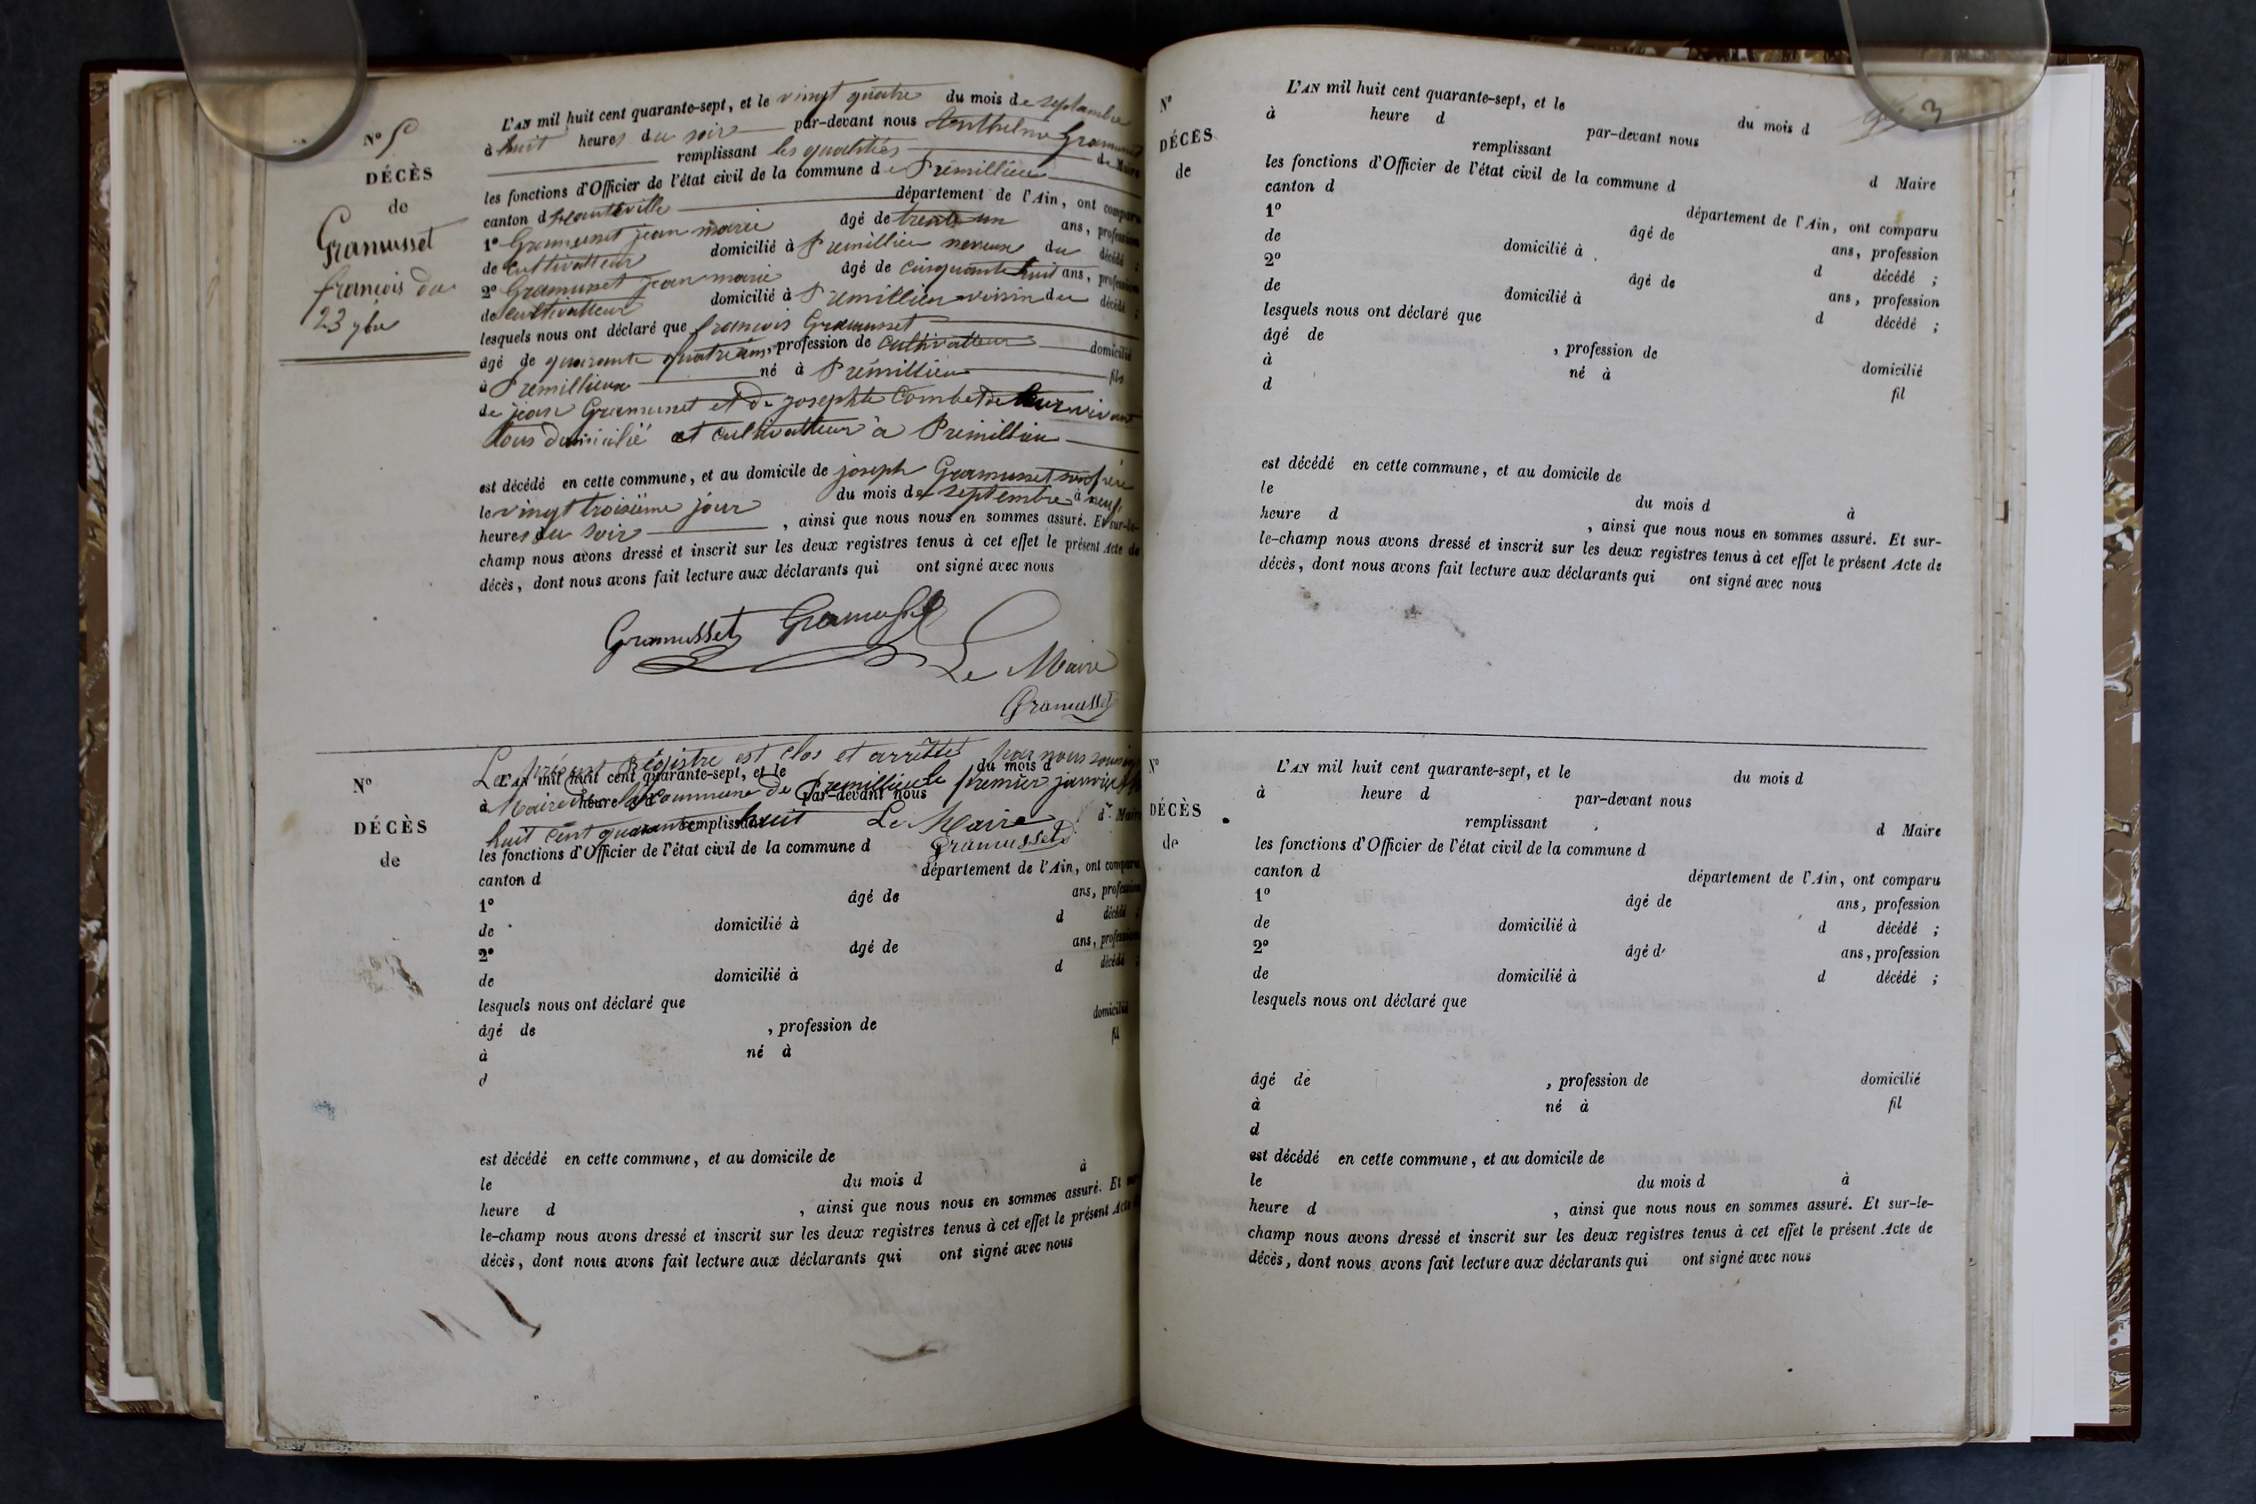 N° 5
DÉCÈS
de
Gramusset
françois du
23 7bre
L'AN mil huit cent quarante-sept, et le vingt quatre du mois de septembre
à huit heures du soir par-devant nous Anthelme Gramusset
remplissant les qualités de Maire
les fonctions d'Officier de l'état civil de la commune de Prémillieu
canton d'hauteville département de l'Ain, ont comparu
1° Gramusset jean marie âgé de trente un ans, profession
de cultivatteur domicilié à Premillieu neveux du décédé ;
2° Gramusset jean marie âgé de cinquante huit ans, profession
de cultivatteur domicilié à Prémillieu voisin du décédé ;
lesquels nous ont déclaré que françois Gramusset
âgé de quarante quatre ans, profession de cultivatteur domicilié
à Premillieu né à Prémillieu fils
de jean Gramusset et de josephte Combet de leur vivant
tous domicilié et cultivatteur à Prémillieu
est décédé en cette commune, et au domicile de joseph Gramusset son frère
le vingt troisième jour du mois de septembre à neuf
heures du soir , ainsi que nous nous en sommes assuré. Et sur-le-
champ nous avons dressé et inscrit sur les deux registres tenus à cet effet le présent Acte de
décès, dont nous avons fait lecture aux déclarants qui ont signé avec nous
Gramusset Gramusset
Le Maire
Gramusset
Le présent Régistre est clos et arrêttet par nous
Maire de la Commune de Premillieu le premier janvier
huit cent quarante huit Le Maire
Gramusset
N°
DÉCÈS
de
L'AN mil huit cent quarante-sept, et le du mois d
à heure d par-devant nous
remplissant d Maire
les fonctions d'Officier de l'état civil de la commune d
canton d département de l'Ain, ont comparu
1° âgé de ans, profession
de domicilié à d décédé ;
2° âgé de ans, profession
de domicilié à d décédé ;
lesquels nous ont déclaré que
âgé de , profession de domicilié
à né à fil
d
est décédé en cette commune, et au domicile de
le du mois d à
heure d , ainsi que nous nous en sommes assuré. Et sur-
le-champ nous avons dressé et inscrit sur les deux registres tenus à cet effet le présent Acte de
décès, dont nous avons fait lecture aux déclarants qui ont signé avec nous
N°
DÉCÈS
de
L'AN mil huit cent quarante-sept, et le du mois d
à heure d par-devant nous
remplissant d Maire
les fonctions d'Officier de l'état civil de la commune d
canton d département de l'Ain, ont comparu
1° âgé de ans, profession
de domicilié à d décédé ;
2° âgé de ans, profession
de domicilié à d décédé ;
lesquels nous ont déclaré que
âgé de , profession de domicilié
à né à fil
d
est décédé en cette commune, et au domicile de
le du mois d à
heure d , ainsi que nous nous en sommes assuré. Et sur-
le-champ nous avons dressé et inscrit sur les deux registres tenus à cet effet le présent Acte de
décès, dont nous avons fait lecture aux déclarants qui ont signé avec nous
N°
DÉCÈS
de
L'AN mil huit cent quarante-sept, et le du mois d
à heure d par-devant nous
remplissant d Maire
les fonctions d'Officier de l'état civil de la commune d
canton d département de l'Ain, ont comparu
1° âgé de ans, profession
de domicilié à d décédé ;
2° âgé d ans, profession
de domicilié à d décédé ;
lesquels nous ont déclaré que
âgé de , profession de domicilié
à né à fil
d
est décédé en cette commune, et au domicile de
le du mois d à
heure d , ainsi que nous nous en sommes assuré. Et sur-le-
champ nous avons dressé et inscrit sur les deux registres tenus à cet effet le présent Acte de
décès, dont nous avons fait lecture aux déclarants qui ont signé avec nous